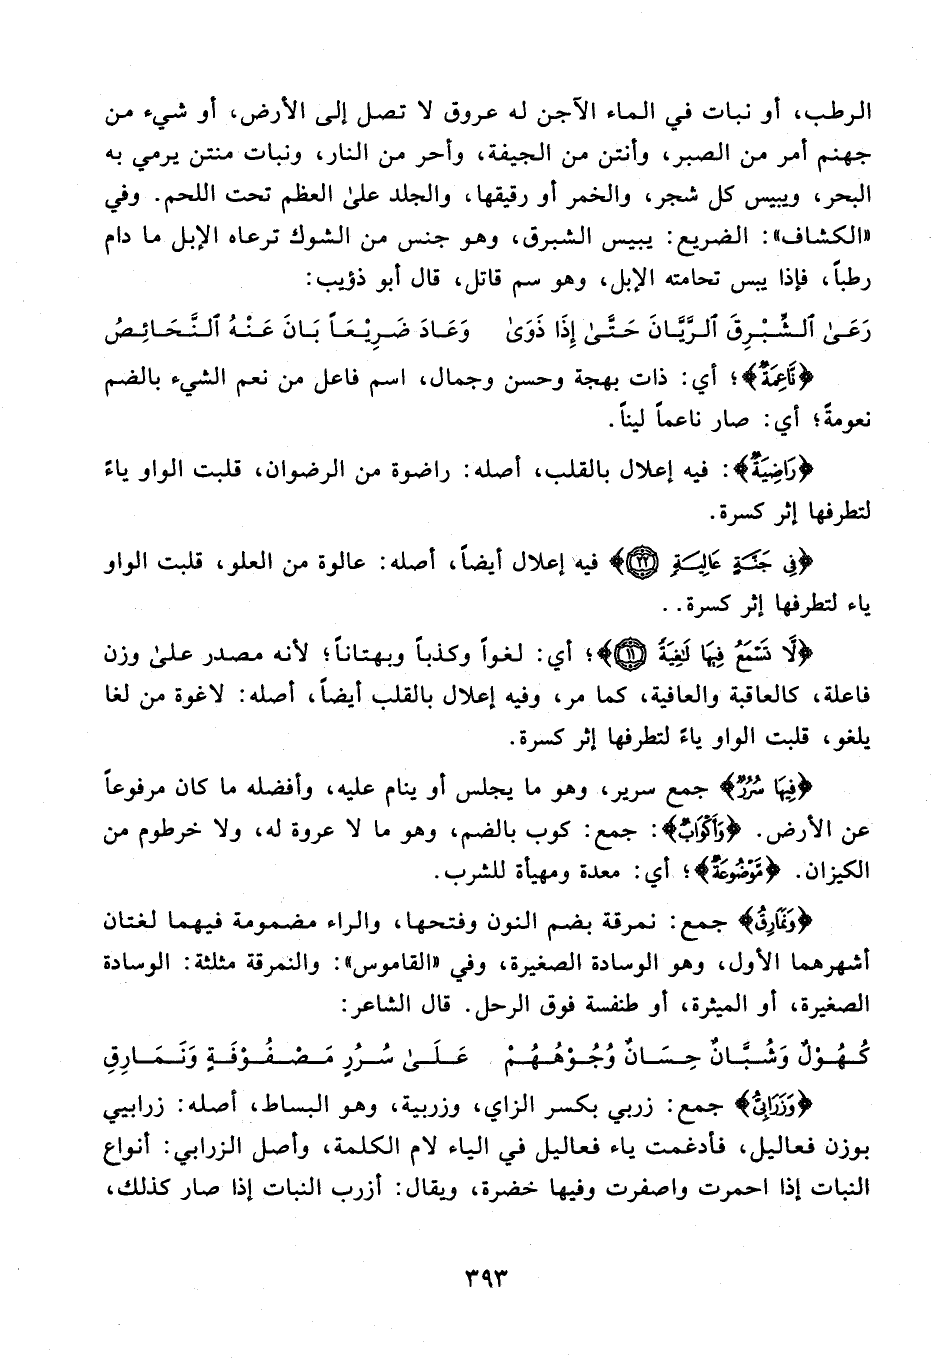 الرطب، أو نبات في الماء الآجن له عروق لا تصل إلى الأرض، أو شيء من
جهنم أمر من الصبر، وأنتن من الجيفة، وأحر من النار، ونبات منتن يرمي به
البحر، ويبيس كل شجر، والخمر أو رقيقها، والجلد على العظم تحت اللحم. وفي
«الكشاف»: الضريع: يبيس الشبرق، وهو جنس من الشوك ترعاه الإبل ما دام
رطباً، فإذا يبس تحامته الإبل، وهو سم قاتل، قال أبو ذؤيب:
رَعَىٰ ٱلشِّبْرِقَ ٱلرَّيَّانَ حَتَّىٰ إِذَا ذَوَىٰ وَعَادَ ضَرِيْعَاً بَانَ عَنْهُ ٱلنَّحَائِصُ
﴿نَّاعِمَةٌ﴾؛ أي: ذات بهجة وحسن وجمال، اسم فاعل من نعم الشيء بالضم
نعومةً؛ أي: صار ناعماً ليناً.
﴿رَاضِيَةٌ﴾: فيه إعلال بالقلب، أصله: راضوة من الرضوان، قلبت الواو ياءً
لتطرفها إثر كسرة.
﴿فِي جَنَّةٍ عَالِيَةٍ ﴿٢٢﴾﴾ فيه إعلال أيضاً، أصله: عالوة من العلو، قلبت الواو
ياء لتطرفها إثر كسرة..
﴿لَّا تَسْمَعُ فِيهَا لَٰغِيَةً ﴿١١﴾﴾؛ أي: لغواً وكذباً وبهتاناً؛ لأنه مصدر على وزن
فاعلة، كالعاقبة والعافية، كما مر، وفيه إعلال بالقلب أيضاً، أصله: لاغوة من لغا
يلغو، قلبت الواو ياءً لتطرفها إثر كسرة.
﴿فِيهَا سُرُرٌ﴾ جمع سرير، وهو ما يجلس أو ينام عليه، وأفضله ما كان مرفوعاً
عن الأرض. ﴿وَأَكْوَابٌ﴾: جمع: كوب بالضم، وهو ما لا عروة له، ولا خرطوم من
الكيزان. ﴿مَّوْضُوعَةٌ﴾؛ أي: معدة ومهيأة للشرب.
﴿وَنَمَارِقُ﴾ جمع: نمرقة بضم النون وفتحها، والراء مضمومة فيهما لغتان
أشهرهما الأول، وهو الوسادة الصغيرة، وفي «القاموس»: والنمرقة مثلثة: الوسادة
الصغيرة، أو الميثرة، أو طنفسة فوق الرحل. قال الشاعر:
كُهُوْلٌ وَشُبَّانٌ حِسَانٌ وُجُوْهُهُمْ عَلَىٰ سُرُرٍ مَصْفُوْفَةٍ وَنَمَارِقِ
﴿وَزَرَابِيُّ﴾ جمع: زربي بكسر الزاي، وزربية، وهو البساط، أصله: زرابيي
بوزن فعاليل، فأدغمت ياء فعاليل في الياء لام الكلمة، وأصل الزرابي: أنواع
النبات إذا احمرت واصفرت وفيها خضرة، ويقال: أزرب النبات إذا صار كذلك،
٣٩٣